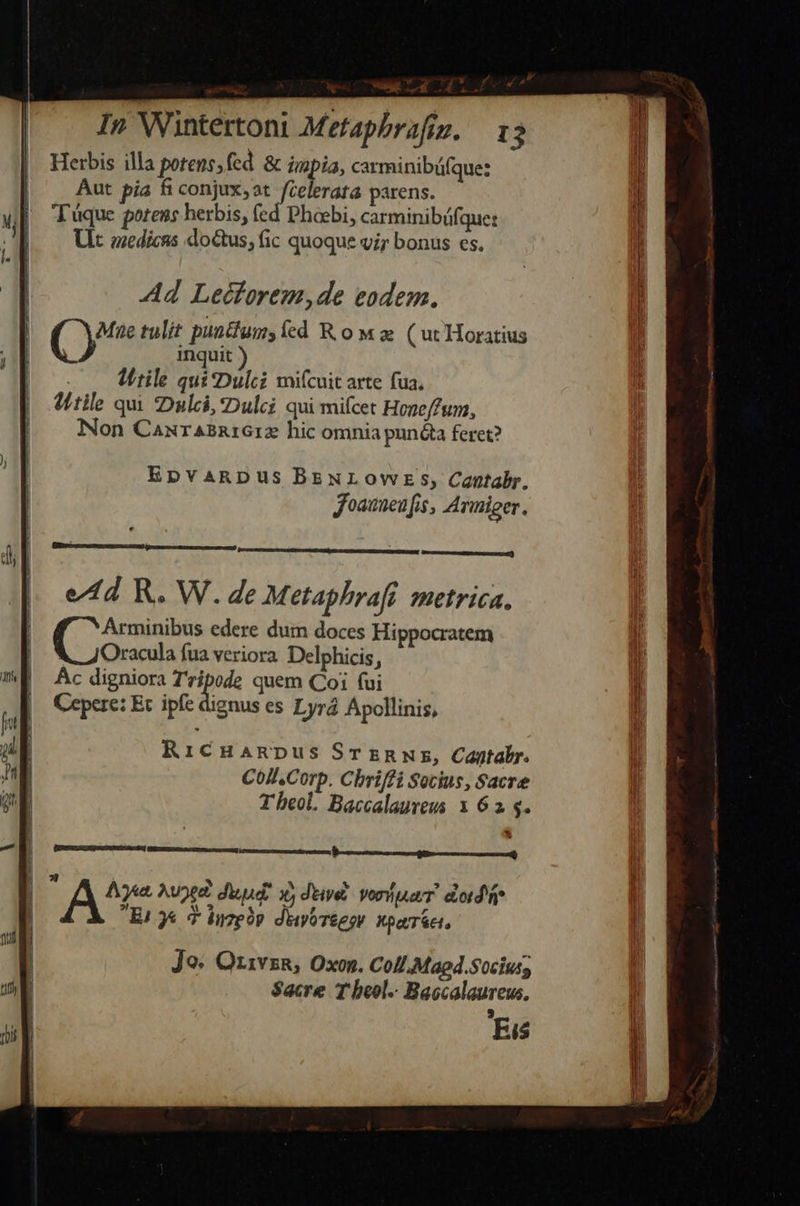 In VVintertoni Metaphraſin. 13
Herbis illa potens, ſed & impia, carminibúſque:
Aut pia ſi conjux, at ſcelerata parens.
Túque potens herbis, ſed Phœbi, carminibúſque:
Ut medicus doctus, ſic quoque vir bonus es.
Ad Lectorem, de eodem.
OMne tulit punctum, ſed ROMÆ (ut Horatius
inquit)
Utile qui Dulci miſcuit arte ſua.
Utile qui Dulci, Dulci qui miſcet Honeſtum,
Non CANTABRIGIÆ hic omnia puncta feret?
EDVARDUS BENLOWES, Cantabr.
Joannenſis, Armiger.
Ad R. W. de Metaphraſi metrica.
CArminibus edere dum doces Hippocratem
Oracula ſua veriora Delphicis,
Ac digniora Tripode quem Coi ſui
Cepere: Et ipſe dignus es Lyrâ Apollinis,
RICHARDUS STERNE, Cantabr.
Coll. Corp. Chriſti Socius, Sacræ
Theol. Baccalaureus 1625.
Jo. OLIVER, Oxon. Coll. Magd. Socius,
Sacræ Theol. Baccalaureus.
Εἰς